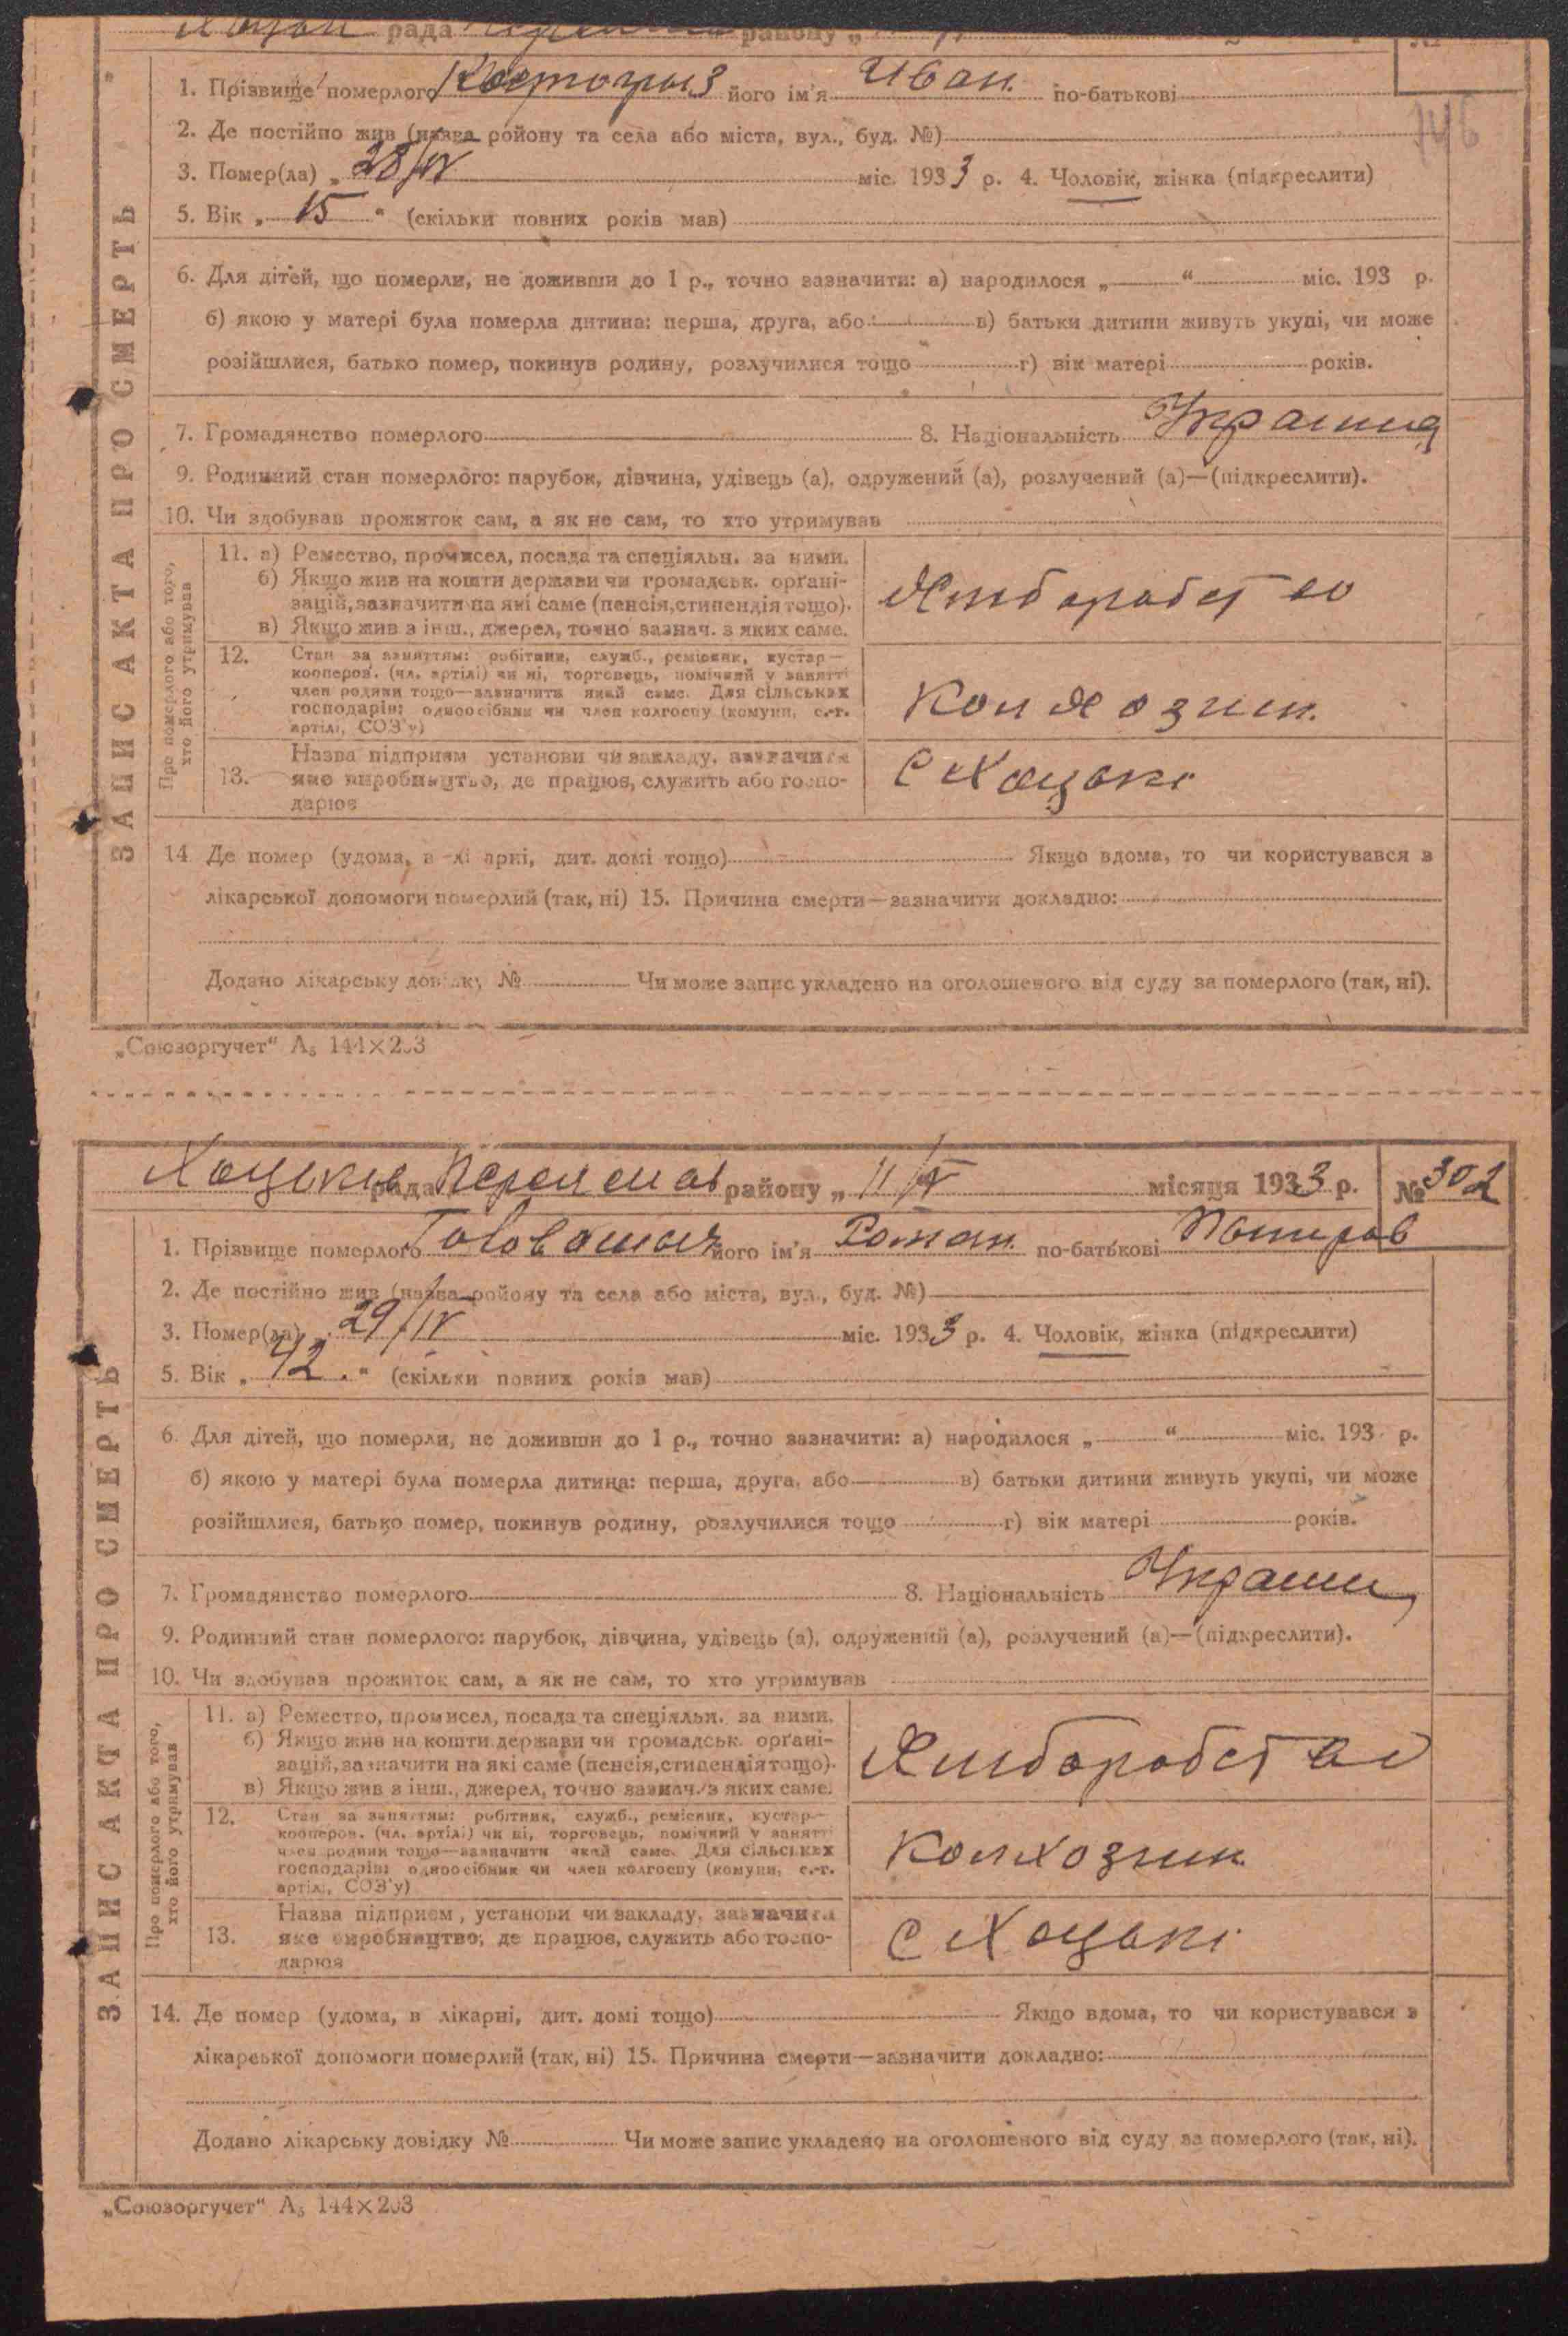 рада району „
1. Прізвище померлого Костогрыз його ім'я Иван. по-батькові
146
2. Де постійно жив (назва ройону та села або міста, вул., буд. №)
3. Помер(ла) „ 28/IV міс. 1933 р. 4. Чоловік, жінка (підкреслити)
5. Вік „ 15 “ (скільки повних років мав)
6. Для дітей, що померли, не доживши до 1 р., точно зазначити: а) народилося „ “ міс. 193 р.
б) якою у матері була померла дитина: перша, друга, або в) батьки дитини живуть укупі, чи може
розійшлися, батько помер, покинув родину, розлучилися тощо г) вік матері років.
7. Громадянство померлого 8. Національність
9. Родинний стан померлого: парубок, дівчина, удівець (а), одружений (а), розлучений (а)—(підкреслити).
10. Чи здобував прожиток сам, а як не сам, то хто утримував
Про померлого або того,
хто його утримував
11. а) Ремество, промисел, посада та спеціяльн. за ними.
б) Якщо жив на кошти держави чи громадськ. орґані-
зацій, зазначити на які саме (пенсія, стипендія тощо).
в) Якщо жив з інш., джерел, точно зазнач. з яких саме.
12. Стан за заняттям: робітник, служб., ремісник, кустар—
кооперов. (чл. артілі) чи ні, торговець, помічний у занятті
член родини тощо—зазначити який саме. Для сільських
господарів: одноосібник чи член колгоспу (комуни, с.-г.
артілі, СОЗ'у)
Колхозник.
13. Назва підприєм установи чи закладу, зазначити
яке виробництво, де працює, служить або госпо-
дарює
С Хоцьки
14. Де помер (удома, в лікарні, дит. домі тощо) Якщо вдома, то чи користувався з
лікарської допомоги померлий (так, ні) 15. Причина смерти—зазначити докладно:
Додано лікарську довідку № Чи може запис укладено на оголошеного від суду за померлого (так, ні).
ЗАПИС АКТА ПРО СМЕРТЬ
„Союзоргучет“ А₅ 144×203
Хоцьків рада Переяслав району „ 11/V місяця 1933 р. № 302
1. Прізвище померлого його ім'я Роман. по-батькові
2. Де постійно жив (назва ройону та села або міста, вул., буд. №)
3. Помер(ла) „ 29/IV міс. 1933 р. 4. Чоловік, жінка (підкреслити)
5. Вік „ 42. “ (скільки повних років мав)
6. Для дітей, що померли, не доживши до 1 р., точно зазначити: а) народилося „ “ міс. 193 р.
б) якою у матері була померла дитина: перша, друга, або в) батьки дитини живуть укупі, чи може
розійшлися, батько помер, покинув родину, розлучилися тощо г) вік матері років.
7. Громадянство померлого 8. Національність
9. Родинний стан померлого: парубок, дівчина, удівець (а), одружений (а), розлучений (а)—(підкреслити).
10. Чи здобував прожиток сам, а як не сам, то хто утримував
Про померлого або того,
хто його утримував
11. а) Ремество, промисел, посада та спеціяльн. за ними.
б) Якщо жив на кошти держави чи громадськ. орґані-
зацій, зазначити на які саме (пенсія, стипендія тощо).
в) Якщо жив з інш., джерел, точно зазнач. з яких саме.
12. Стан за заняттям: робітник, служб., ремісник, кустар—
кооперов. (чл. артілі) чи ні, торговець, помічний у занятті
член родини тощо—зазначити який саме. Для сільських
господарів: одноосібник чи член колгоспу (комуни, с.-г.
артілі, СОЗ'у)
Колхозник
13. Назва підприєм, установи чи закладу, зазначити
яке виробництво, де працює, служить або госпо-
дарює
С Хоцьки
14. Де помер (удома, в лікарні, дит. домі тощо) Якщо вдома, то чи користувався з
лікарської допомоги померлий (так, ні) 15. Причина смерти—зазначити докладно:
Додано лікарську довідку № Чи може запис укладено на оголошеного від суду за померлого (так, ні).
ЗАПИС АКТА ПРО СМЕРТЬ
„Союзоргучет“ А₅ 144×203